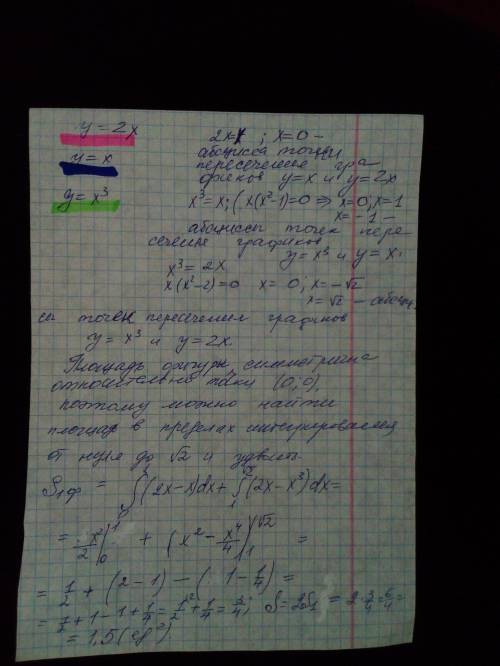 y = 2x
2x=x ; x=0 –
абсцисса точки
y = x
пересечения гра
фиков y=x и y=2x
y = x³
x³=x; ( x(x²-1)=0 ⇒ x=0, x=1
x= -1 –
абсциссы точек пере
сечения графиков
y=x³ и y=x.
x³ = 2x
x(x²-2)=0 x= 0; x=-√2
x=√2 – абсцис
сы точек пересечения графиков
y=x³ и y=2x.
Площадь фигуры симметрична
относительно точки (0;0),
поэтому можно найти
площадь в пределах интегрирования
от нуля до √2 и удвоить
S½ф = ∫₀¹(2x-x)dx + ∫₁^√2(2x-x³)dx=
= x²/2|₀¹ + (x² - x⁴/4)|₁^√2 =
= 1/2 + (2-1) - (1-1/4) =
= 1/2+1-1+1/4 = 1/2+1/4 = 3/4; S=2S₁ = 2·3/4=6/4=
= 1,5 (ед²)